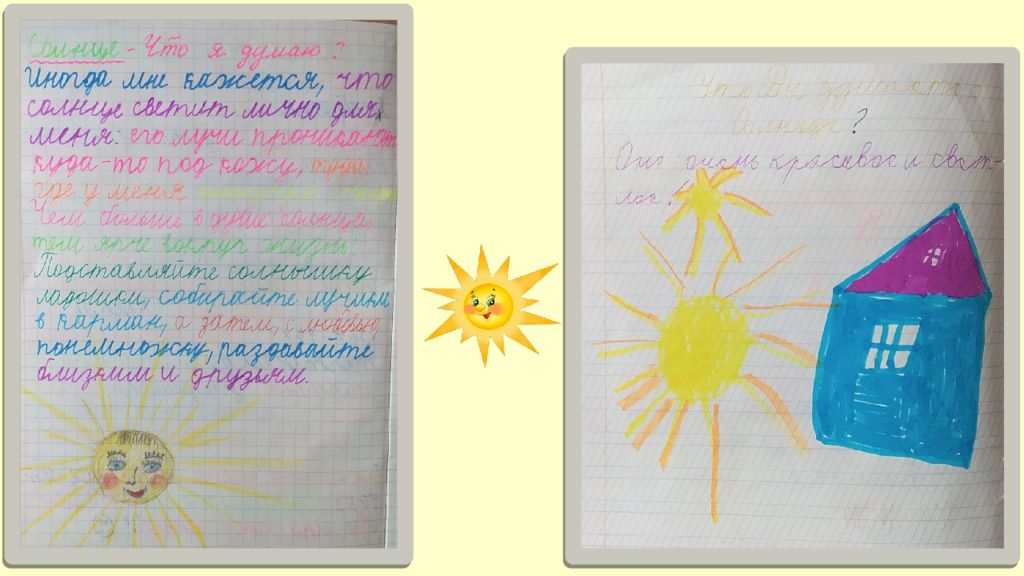 Солнце - Что я думаю?
Иногда мне кажется, что
солнце светит лично для
меня: его лучи проникают
куда-то под кожу, туда,
где у меня
Чем больше в душе солнца,
тем ярче вокруг жизнь!
Подставляйте солнышку
ладошки, собирайте лучики
в карман, а затем, с любовью,
понемножку, раздавайте
близким и друзьям.
Что Вы думаете о
Солнце?
Оно очень красивое и свет-
лое!